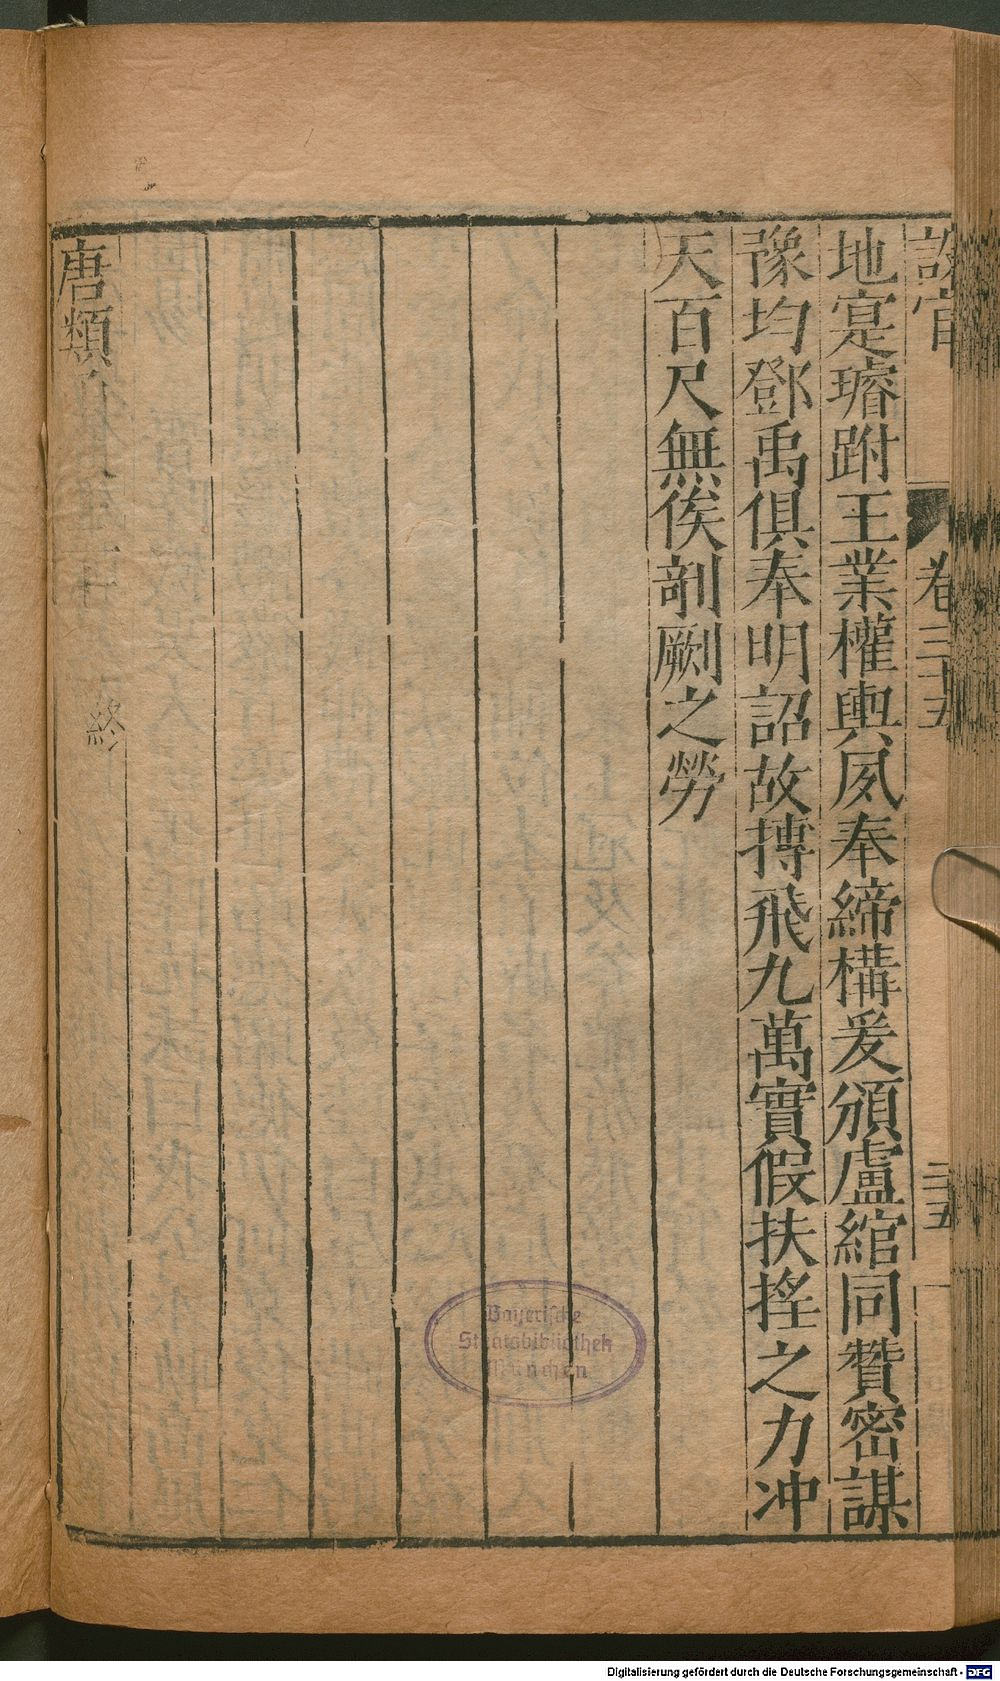 設官 卷三十五 三五
地寔璿跗王業權輿夙奉締構爰頒盧綰同贊密謀
豫均鄧禹俱奉明詔故摶飛九萬實假扶搖之力冲
天百尺無俟剞劂之勞
唐類函卷 終
Bayerische
Staatsbibliothek
München
Digitalisierung gefördert durch die Deutsche Forschungsgemeinschaft - DFG